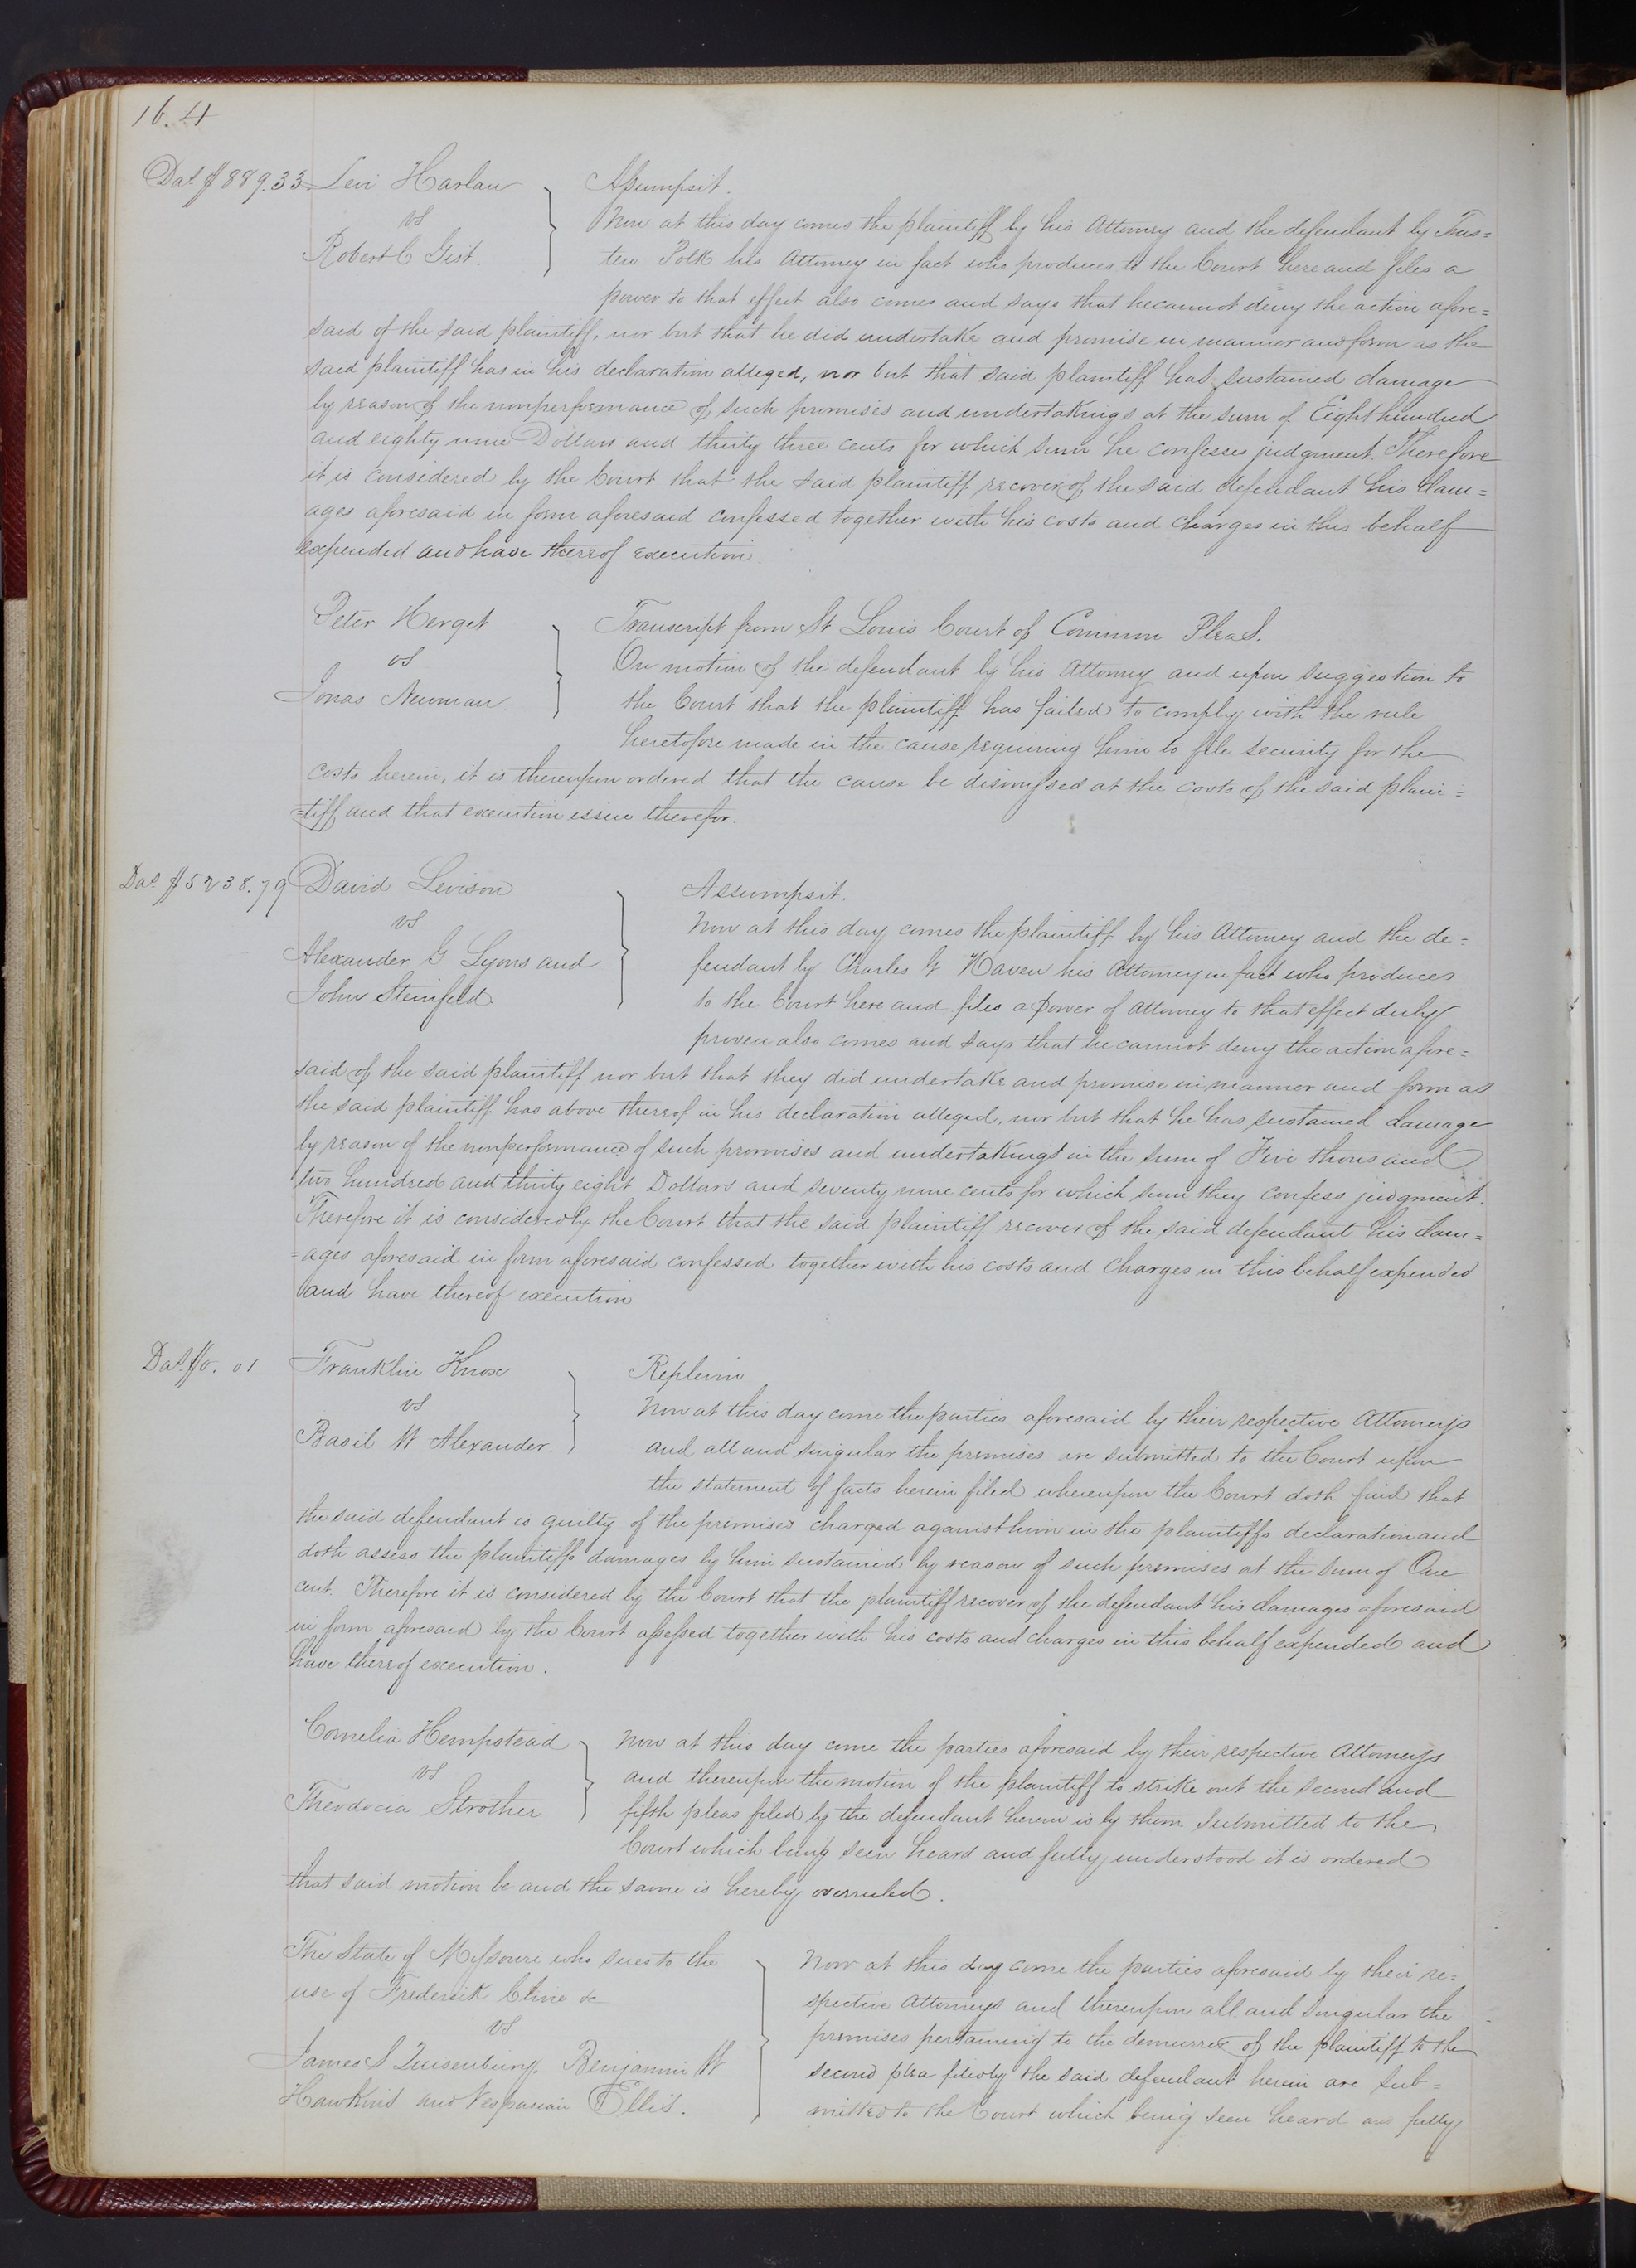 164
Das $889.33 Levi Harlan Assumpsit.
vs Now at this day comes the plaintiff by his Attorney and the defendant by Trus=
Robert C Gist. ten Polk his Attorney in fact who produces to the Court here and files a
power to that effect also comes and says that he cannot deny the action afore=
said of the said plaintiff, nor but that he did undertake and promise in manner and form as the
said plaintiff has in his declaration alleged, nor but that said plaintiff has sustained damage
by reason of the nonperformance of such promises and undertakings at the sum of Eight hundred
and eighty nine Dollars and thirty three cents for which sum he confesses judgment. Therefore
it is considered by the Court that the said plaintiff recover of the said defendant his dam=
ages aforesaid in form aforesaid confessed together with his costs and charges in this behalf
expended and have thereof execution.
Peter Herget Transcript from St Louis Court of Common Pleas.
vs On motion of the defendant by his Attorney and upon suggestion to
Jonas Newman. the Court that the plaintiff has failed to comply with the rule
heretofore made in the cause requiring him to file security for the
costs herein, it is thereupon ordered that the cause be dismissed at the costs of the said plain=
=tiff and that execution issue therefor.
Das $5238.79 David Levison Assumpsit.
vs Now at this day comes the plaintiff by his Attorney and the de=
Alexander G Lyons and fendant by Charles G Haven his Attorney in fact who produces
John Steinfeld to the Court here and files a power of attorney to that effect duly
proven also comes and says that he cannot deny the action afore=
said of the said plaintiff nor but that they did undertake and promise in manner and form as
the said plaintiff has above thereof in his declaration alleged, nor but that he has sustained damage
by reason of the nonperformance of such promises and undertakings in the sum of Five thousand
two hundred and thirty eight Dollars and seventy nine cents for which sum they confess judgment.
Therefore it is considered by the Court that the said plaintiff recover of the said defendant his dam=
=ages aforesaid in form aforesaid confessed together with his costs and charges in this behalf expended
and have thereof execution
Das $0.01 Franklin Knox Replevin
vs Now at this day come the parties aforesaid by their respective Attorneys
Basil W Alexander. and all and singular the premises are submitted to the Court upon
the statement of facts herein filed whereupon the Court doth find that
the said defendant is guilty of the premises charged against him in the plaintiffs declaration and
doth assess the plaintiffs damages by him sustained by reason of such premises at the sum of One
cent. Therefore it is considered by the Court that the plaintiff recover of the defendant his damages aforesaid
in form aforesaid by the Court assessed together with his costs and charges in this behalf expended and
have thereof execution.
Cornelia Hempstead Now at this day come the parties aforesaid by their respective Attorneys
vs and thereupon the motion of the plaintiff to strike out the second and
Theodocia Strother fifth pleas filed by the defendant herein is by them submitted to the
Court which being seen heard and fully understood it is ordered
that said motion be and the same is hereby overruled.
The State of Missouri who sues to the Now at this day come the parties aforesaid by their re=
use of Frederick Cline &c spective Attorneys and thereupon all and singular the
vs premises pertaining to the demurrer of the plaintiff to the
James S Quisenbury, Benjamin W second plea filed by the said defendant herein are sub=
Hawkins and Vespasian Ellis. mitted to the Court which being seen heard and fully